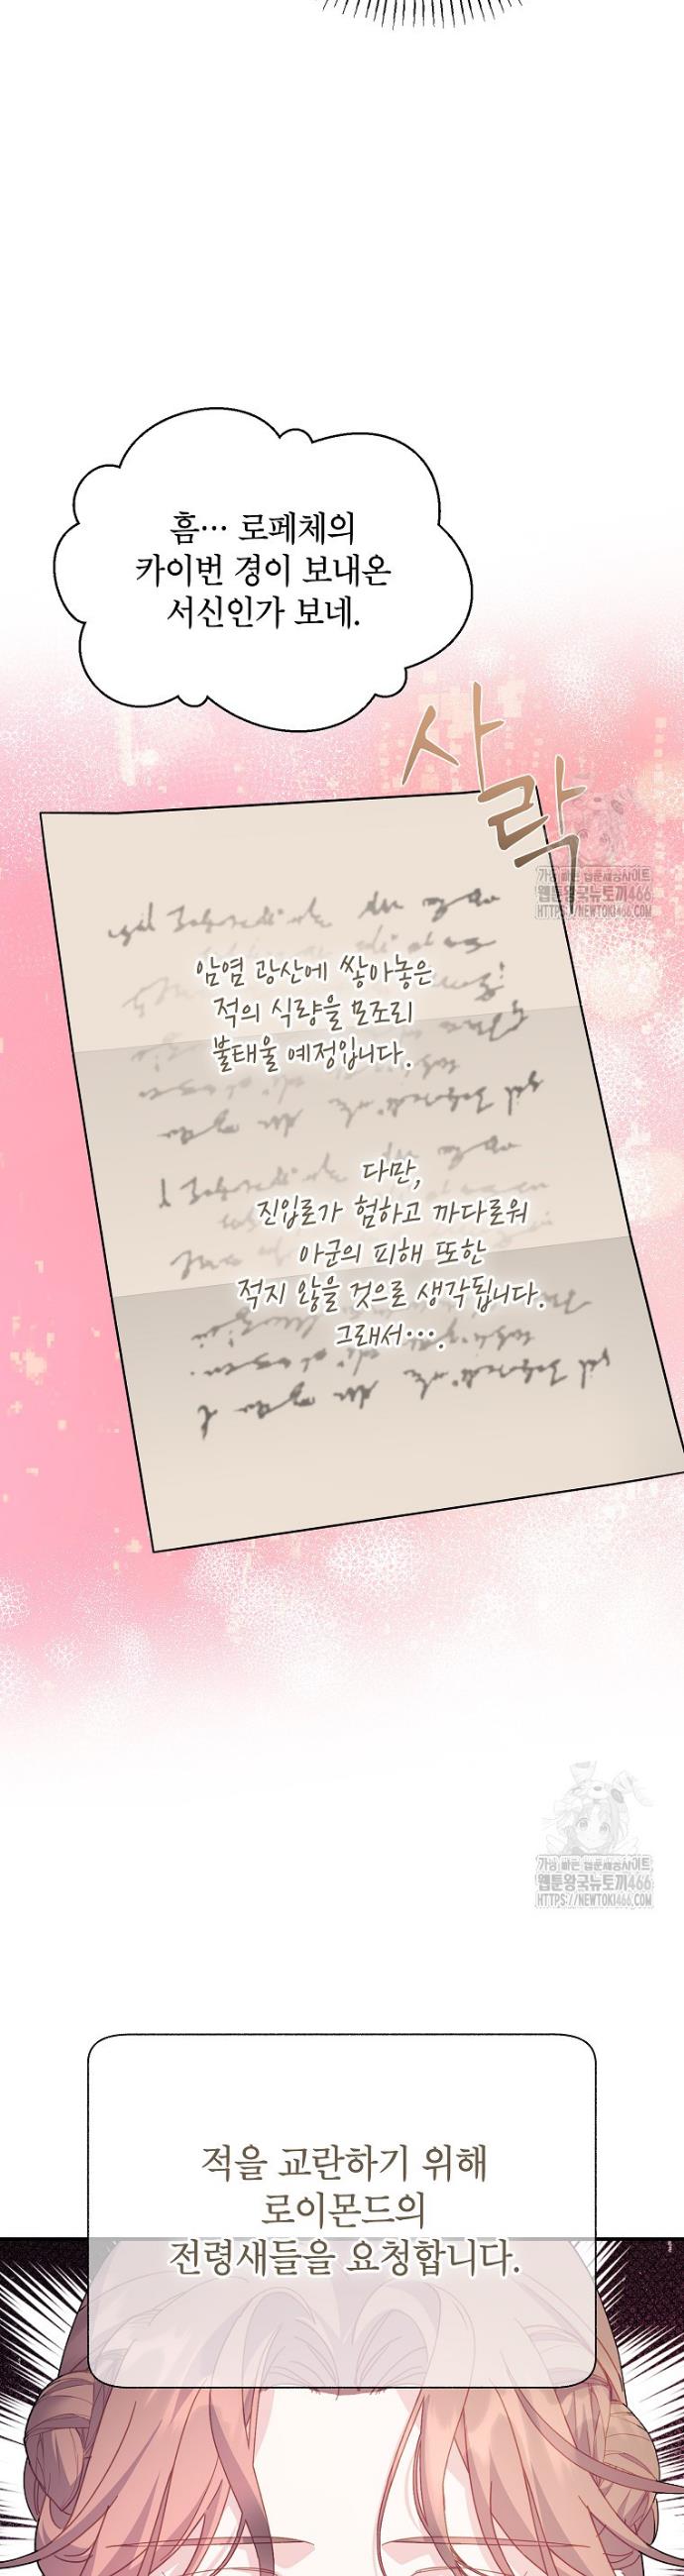 흠… 로페체의
카이번 경이 보내온
서신인가 보네.
사락
가장 빠른 웹툰제공사이트
웹툰왕국뉴토끼466
HTTPS://NEWTOKI466.COM
암염 광산에 쌓아놓은
적의 식량을 모조리
불태울 예정입니다.
다만,
진입로가 험하고 까다로워
아군의 피해 또한
적지 않을 것으로 생각됩니다.
그래서….
가장 빠른 웹툰제공사이트
웹툰왕국뉴토끼466
HTTPS://NEWTOKI466.COM
적을 교란하기 위해
로이몬드의
전령새들을 요청합니다.